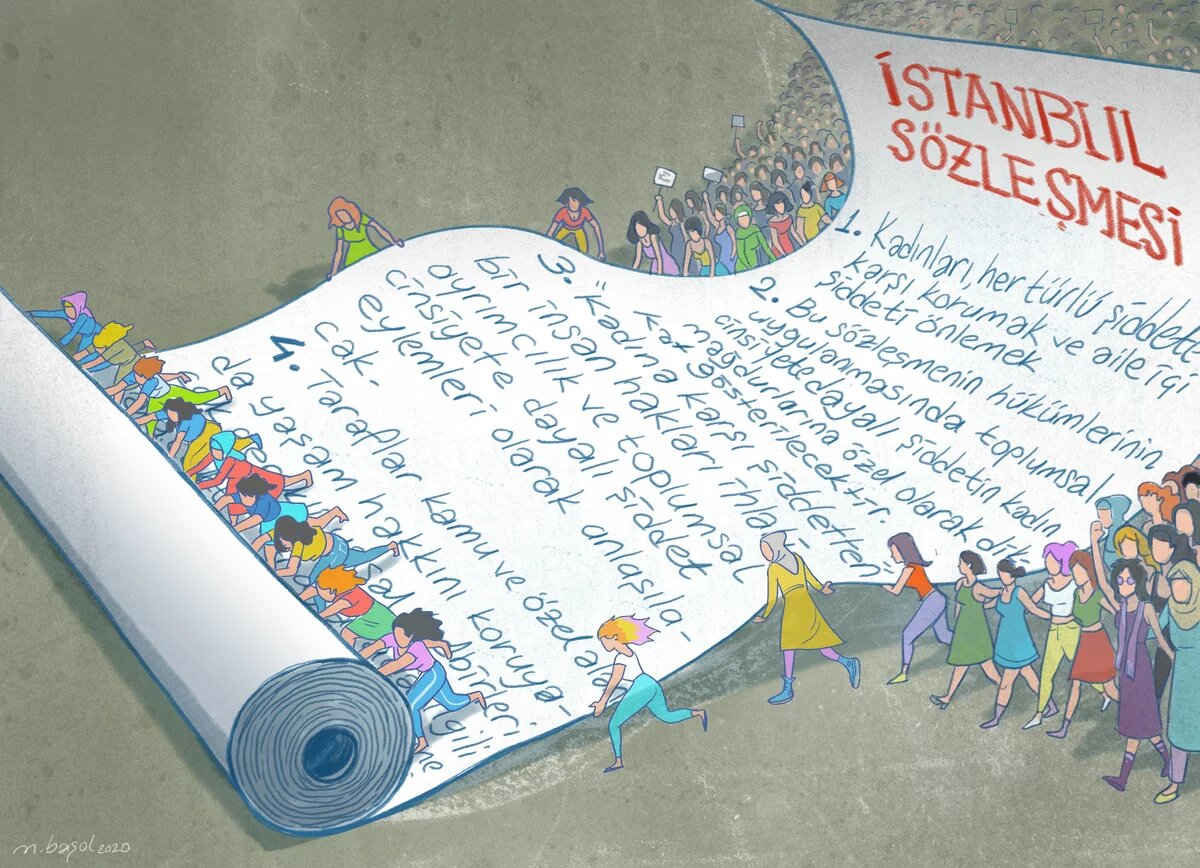 İSTANBUL
SÖZLEŞMESİ
1. Kadınları, her türlü şiddett
karşı korumak ve aile içi
şiddeti önlemek
2. Bu sözleşmenin hükümlerinin
uygulanmasında toplumsal
cinsiyete dayalı şiddetin kadın
mağdurlarına özel olarak dik
kat gösterilecektir.
3. "Kadına karşı şiddetten
bir insan hakları ihlali
ayrımcılık ve toplumsal
cinsiyete dayalı şiddet
eylemleri olarak anlaşıla-
cak.
4. Taraflar kamu ve özel alan
da yaşam hakkını koruya-
m.başol 2020